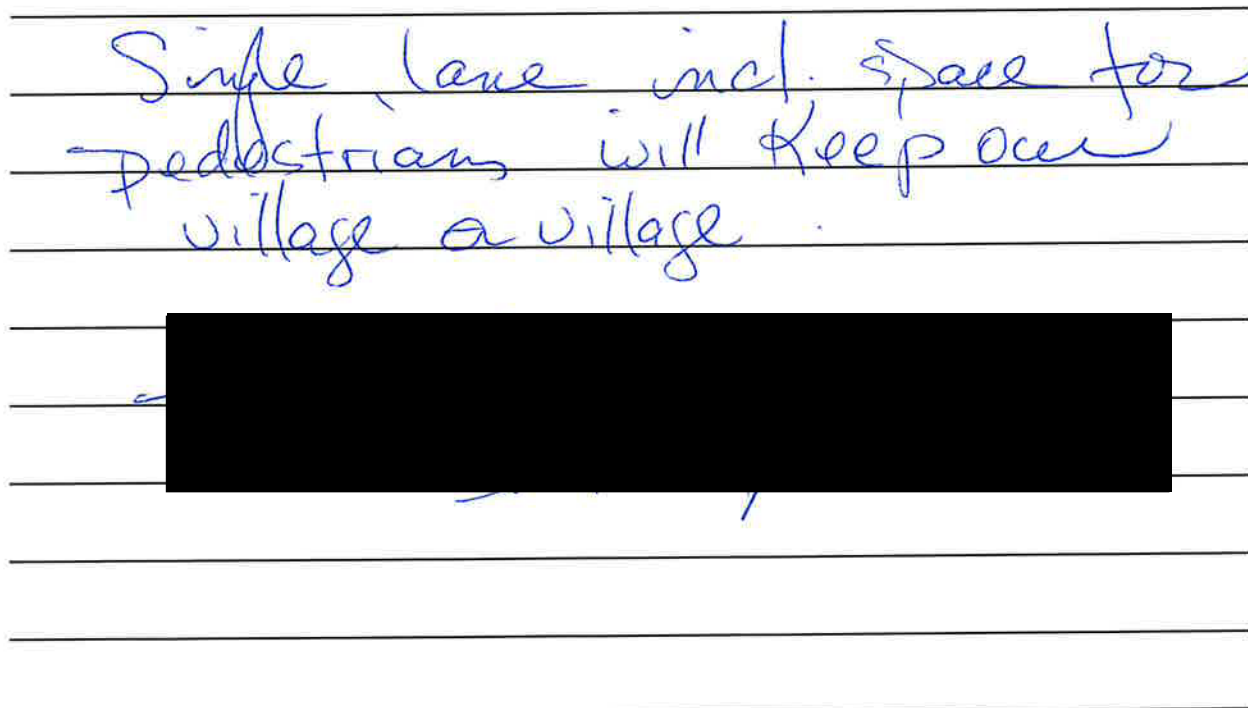 Single lane incl. space for
pedestrians will keep our
village a village.